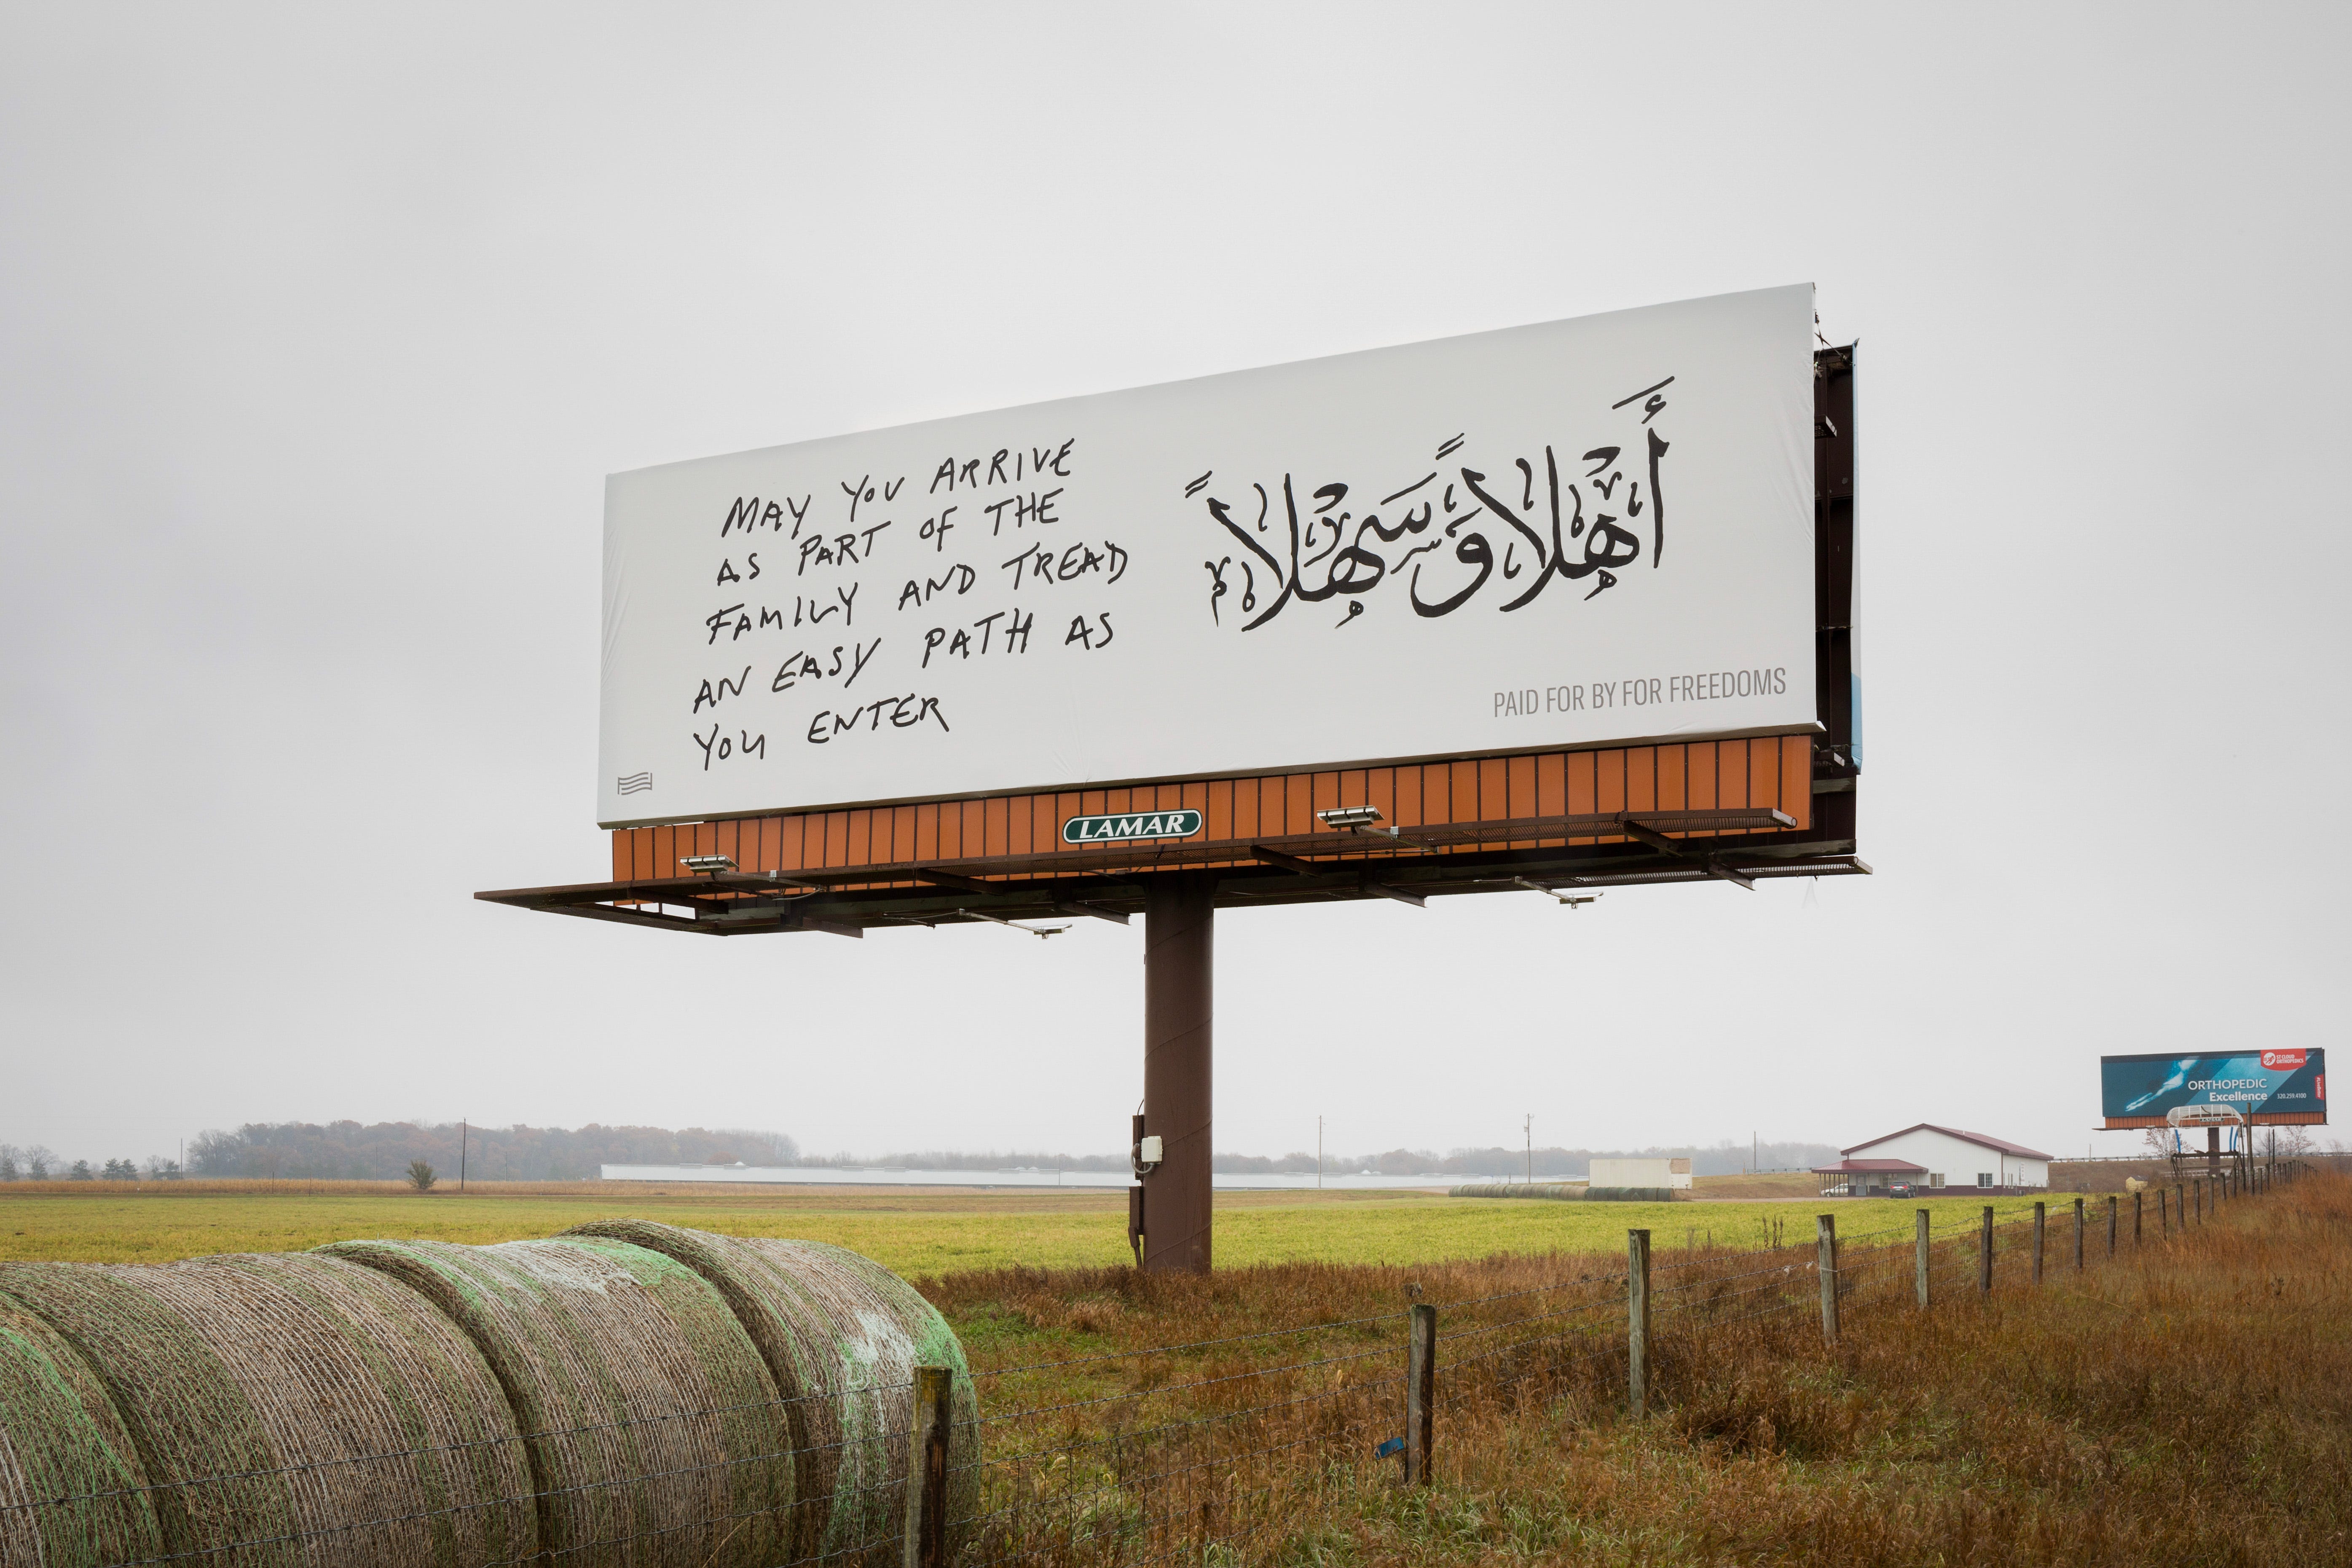 MAY YOU ARRIVE
AS PART OF THE
FAMILY AND TREAD
AN EASY PATH AS
YOU ENTER
أَهْلاً وَسَهْلاً
PAID FOR BY FOR FREEDOMS
LAMAR
ST. CLOUD
ORTHOPEDICS
ORTHOPEDIC
Excellence
320.259.4100